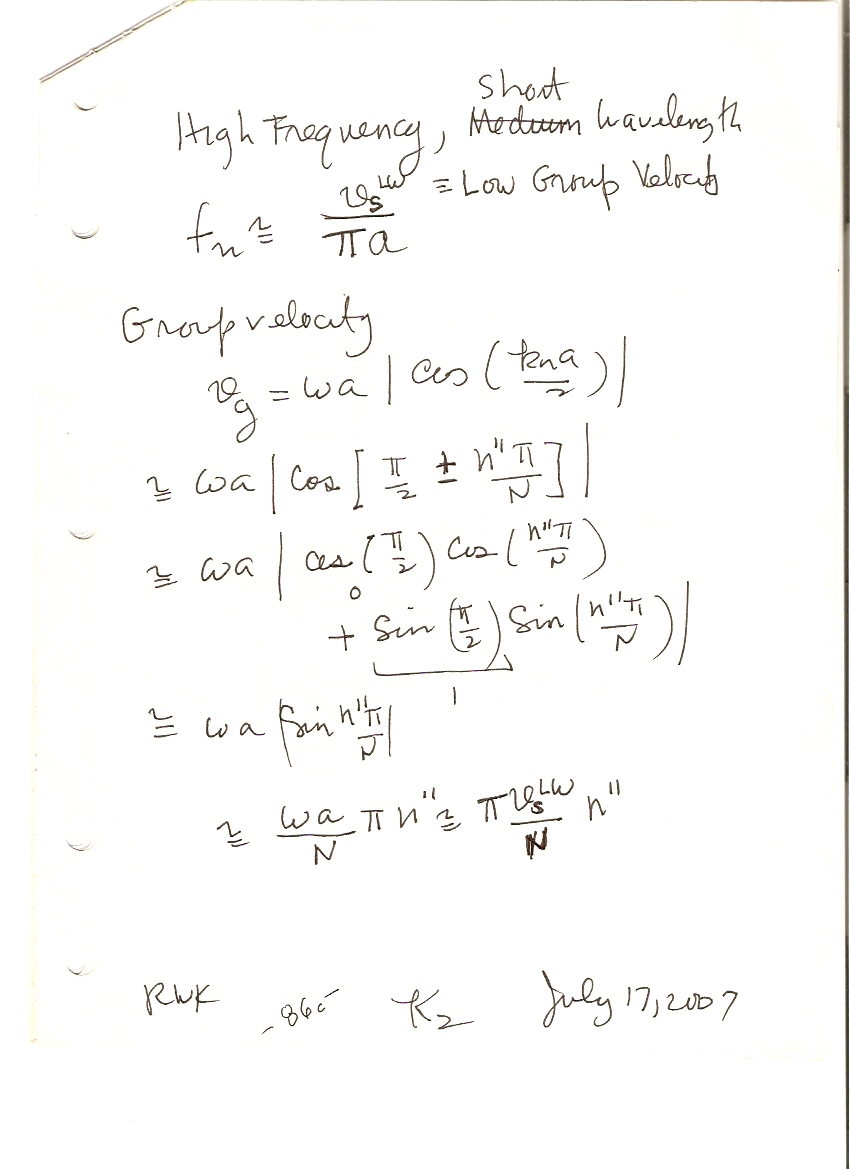 Short
High Frequency, ~~Medium~~ Wavelength
fₙ ≅ vₛᴸᵂ / πa ≡ Low Group Velocity
Group velocity
v_g = ωa | cos ( kₙa / 2 ) |
≅ ωa | cos [ π/2 ± n''π/N ] |
≅ ωa | cos ( π/2 ) cos ( n''π/N )
0
+ Sin ( π/2 ) Sin ( n''π/N ) |
1
≅ ωa | Sin n''π/N |
≅ ωa/N π n'' ≅ π vₛᴸᵂ/N n''
RWK K₂ July 17, 2007